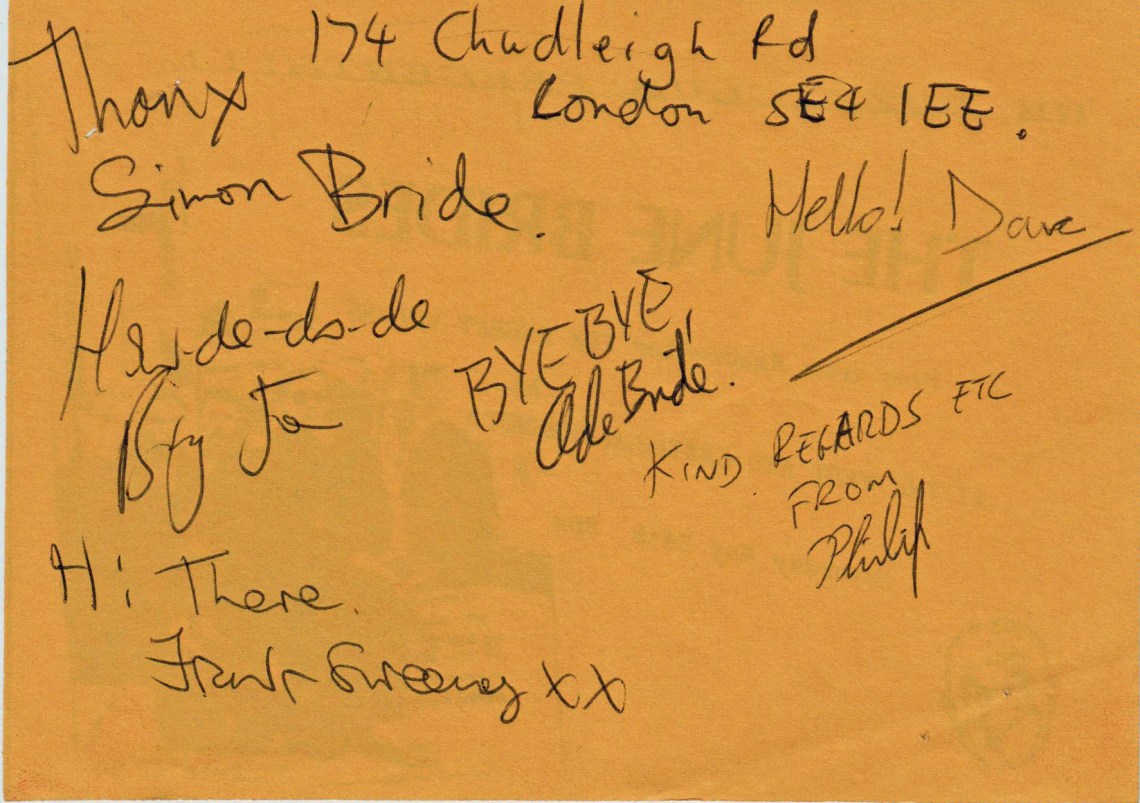 174 Chudleigh Rd
London SE4 1EE.
Thanx
Simon Bride.
Hello! Dave
Hi-de-do-de
Big Jo
BYE BYE,
Ade Bride.
KIND REGARDS ETC
FROM
Philip
Hi There.
Frank Sweeney xx
THE JUNE BRIDE